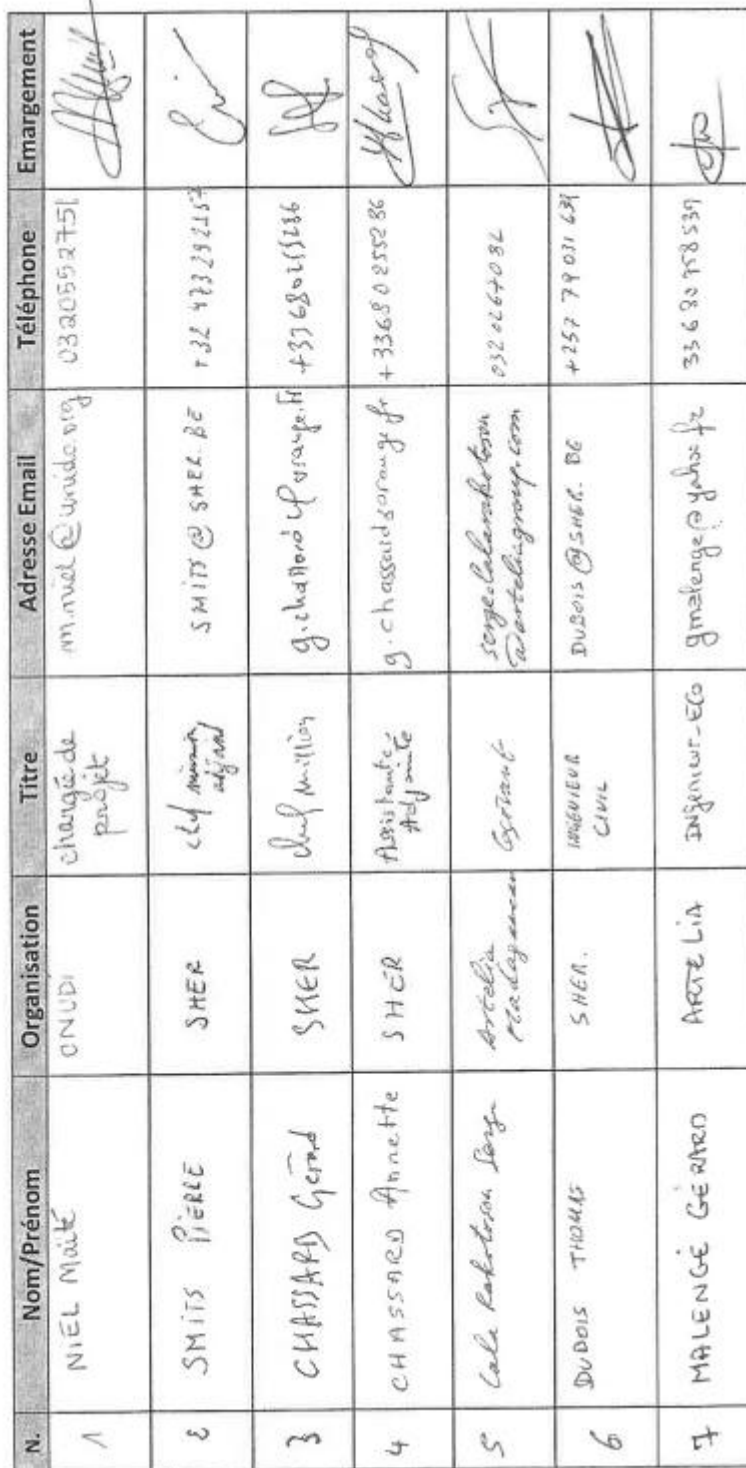 N. Nom/Prénom Organisation Titre Adresse Email Téléphone Emargement
1 NIEL Maité ONUDI chargée de projet m.niel@unido.org 0320552751
2 SMITS PIERRE SHER chef mission adjoint SMITS@SHER.BE +32 473292157
3 CHASSARD Gérard SHER chef mission g.chassard@orange.fr +33680255286
4 CHASSARD Annette SHER Assistante Adjointe g.chassard@orange.fr +33680255286
5 Lala Rakotoson Serge Artelia Madagascar Gérant 0320267082
6 DUBOIS THOMAS SHER. INGENIEUR CIVIL DUBOIS@SHER.BE +257 79 031 639
7 MALENGÉ GÉRARD ARTELIA Ingénieur-ECO gmalenge@yahoo.fr 33680758539